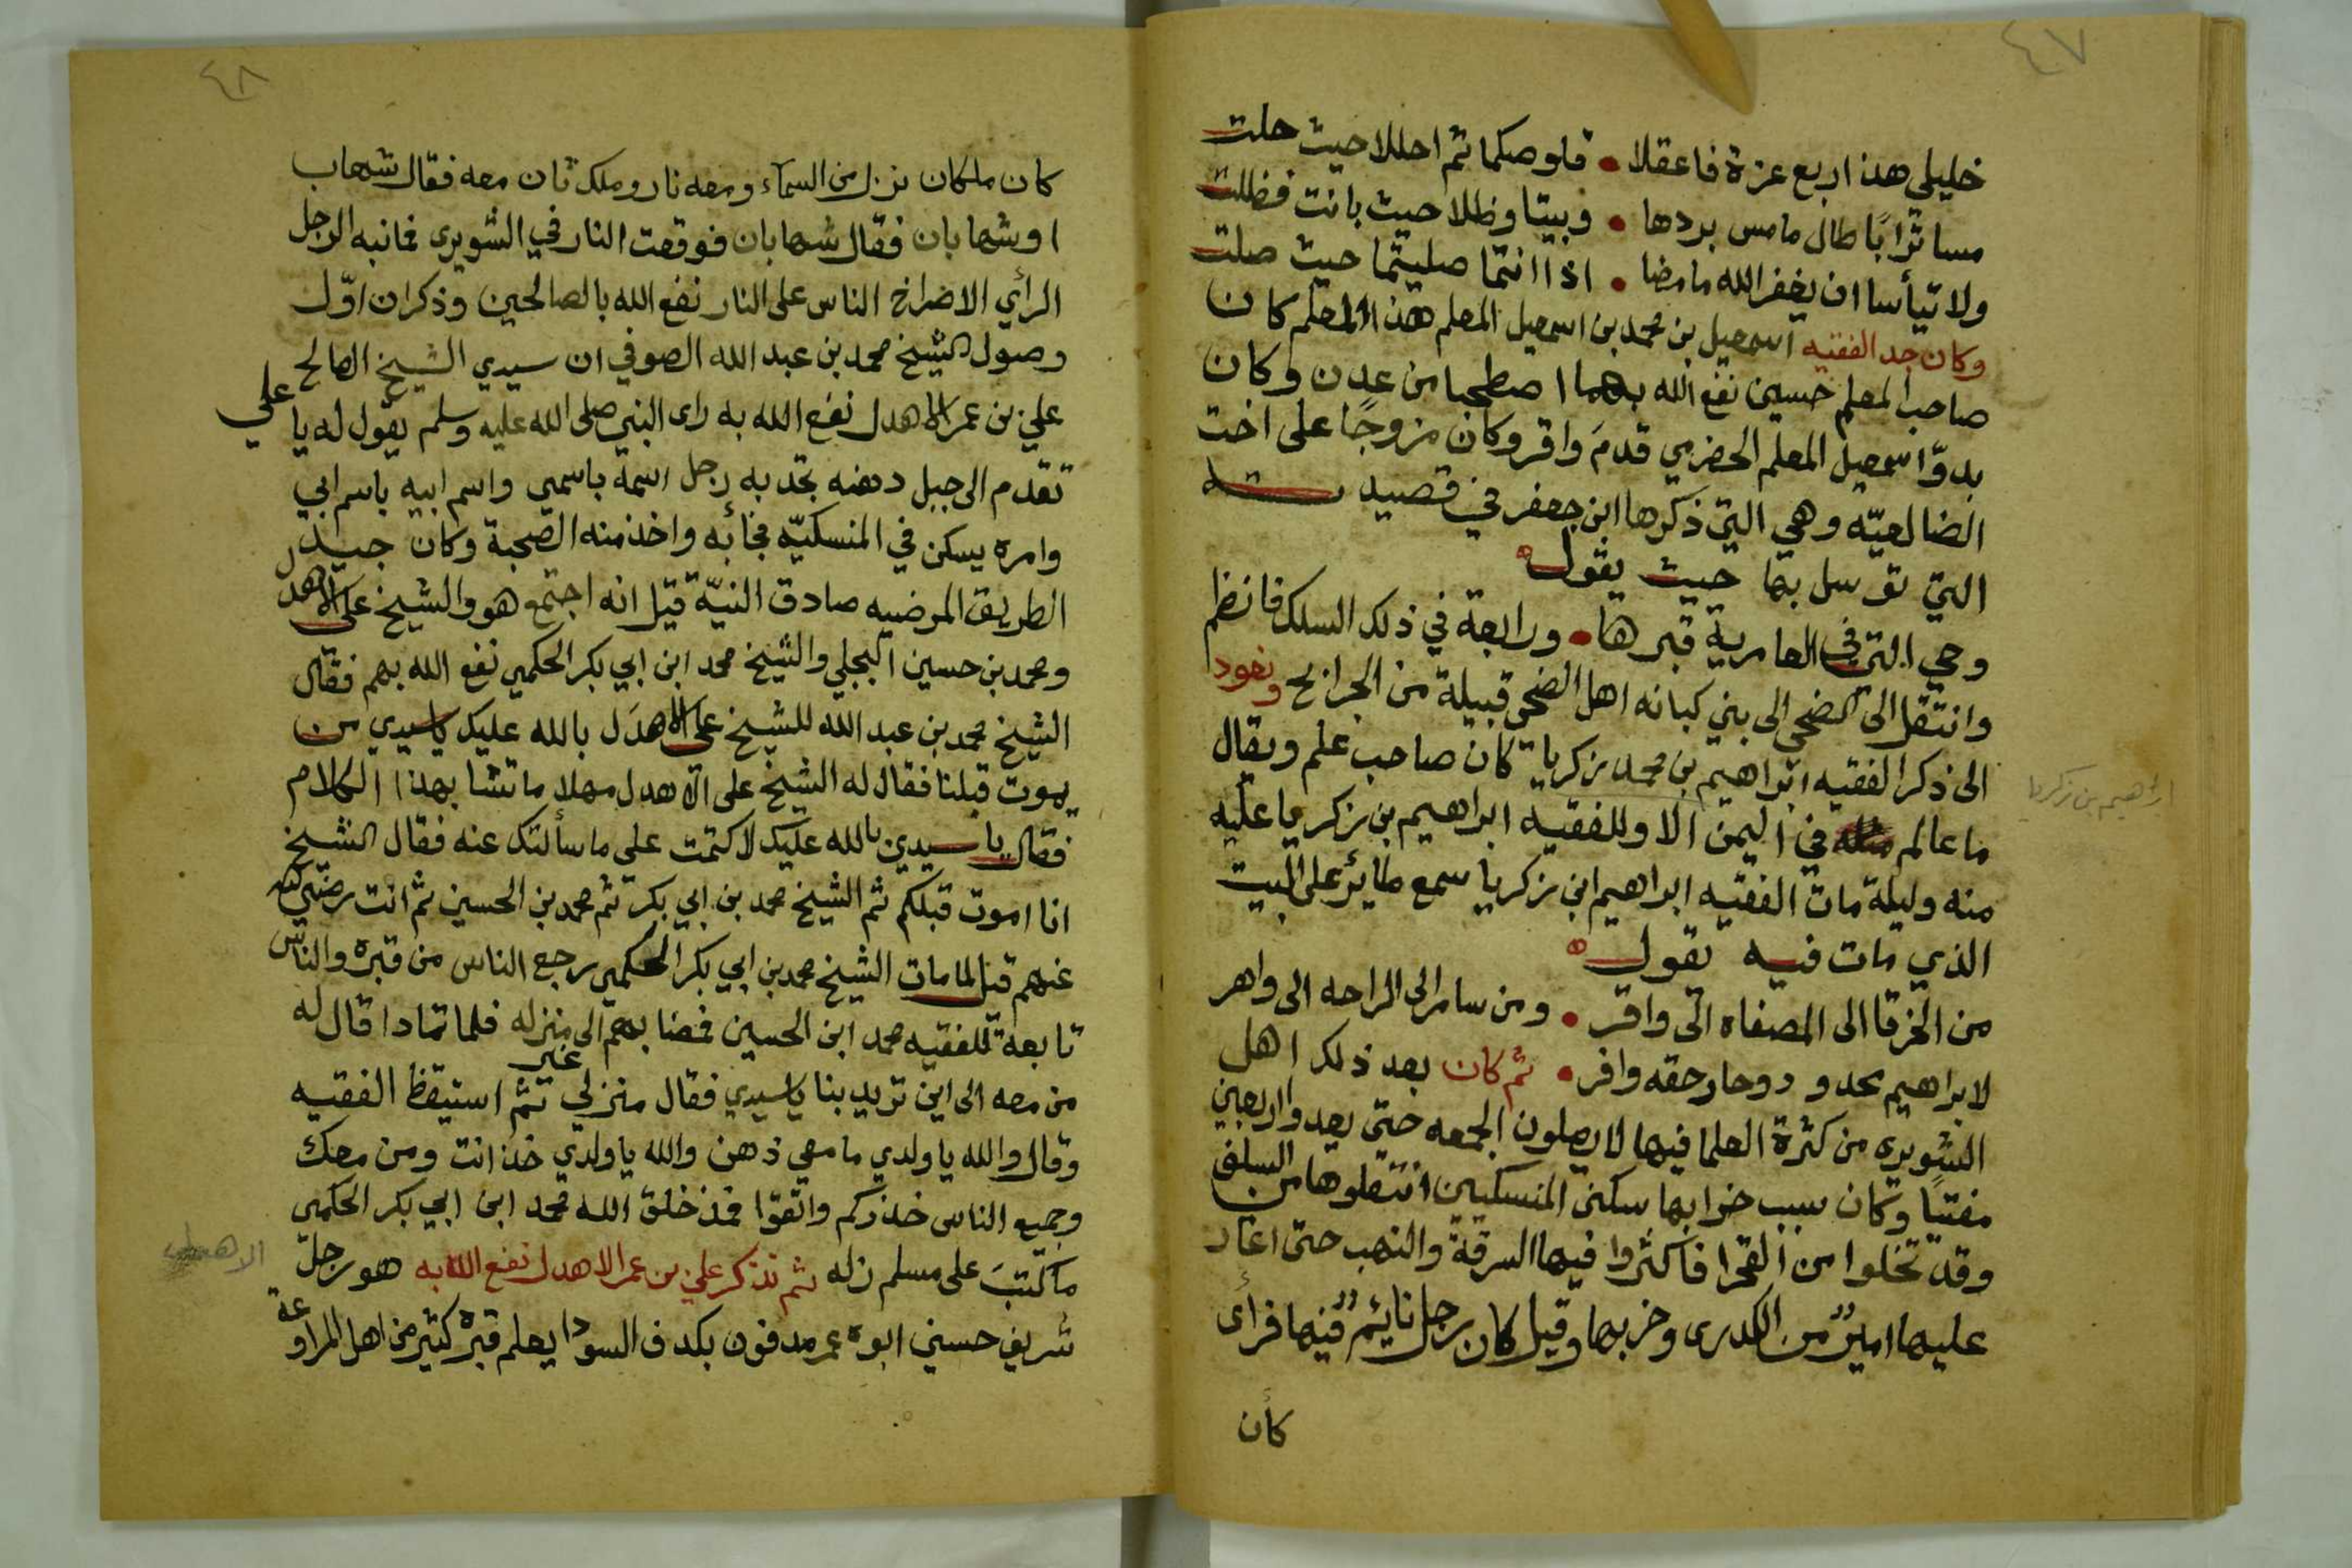 ٤٧
خليلي هذا ربع عزة فاعقلا • قلوصكما ثم احللا حيث حلت
مسا ترابًا طال ما مس بردها • وبيتا وظلا حيث باتت فظلت
ولا تيأسا ان يغفر الله ما مضا • اذا انتما صليتما حيث صلت
وكان جد الفقيه اسمعيل بن محمد بن اسمعيل المعلم هذا المعلم كان
صاحب المعلم حسين نفع الله بهما اصطحبا من عدن وكان
بدوّ اسمعيل المعلم الحضرمي قدم واقر وكان مزوجًا على اخت
الضالعيّه وهي التي ذكرها ابن جعفر في قصيدته
التي توسل بها حيث يقول
وحي التي في العامرية قبرها • ورابعة في ذلك السلك فانظم
وانتقل الى الضحي الى بني كبانه اهل الضحي قبيلة من الجرابح ونعود
الى ذكر الفقيه ابراهيم بن محمد بن زكريا كان صاحب علم ويقال
ابراهيم بن زكريا
ما عالم مثله في اليمن الا وللفقيه ابراهيم بن زكريا عليه
منه وليلة مات الفقيه ابراهيم ابن زكريا سمع طائر على البيت
الذي مات فيه يقول
من الخرقا الى المصفاه الى واقر • ومن سامر الى الراحه الى واهر
لابراهيم حدود وحار حقه وافر • ثم كان بعد ذلك اهل
الشويرى من كثرة العلما فيها لا يصلون الجمعه حتى يعدوا اربعين
مفتيًا وكان سبب خرابها سكنى المنسكيين انتقلوها من السلف
وقد تخلوا من الفقرا فأكثروا فيها السرقة والنهب حتى اغار
عليها امير من الكدرى وخربها وقيل كان رجل نايم فيها فرأى
كأن
٤٨
كان ملكان نزل من السمآء ومعه نار وملك ثان معه فقال شهاب
او شهابان فقال شهابان فوقعت النار في الشويرى فانبه الرجل
الرأي الا ضراخ الناس على النار نفع الله بالصالحين وذكر ان اوّل
وصول الشيخ محمد بن عبد الله الصوفي ان سيدي الشيخ الصالح
علي بن عمر الاهدل نفع الله به راى النبي صلى الله عليه وسلم يقول له يا علي
تقدم الى جبل دهنه تجد به رجل اسمه باسمي واسم ابيه باسم ابي
وامره يسكن في المنسكيّه فجائه واخذ منه الصحبة وكان جيد
الطريق المرضيه صادق النيّة قيل انه اجتمع هو والشيخ على الاهدل
ومحمد بن حسين البجلي والشيخ محمد ابن ابي بكر الحكمي نفع الله بهم فقال
الشيخ محمد بن عبد الله للشيخ على الاهدل بالله عليك يا سيدي من
يموت قبلنا فقال له الشيخ على الاهدل مهلا ما تشا بهذا الكلام
فقال يا سيدي بالله عليك لا كتمت على ما سألتك عنه فقال الشيخ
انا اموت قبلكم ثم الشيخ محمد بن ابي بكر ثم محمد بن الحسين ثم انت رضي الله
عنهم قيل لما مات الشيخ محمد بن ابي بكر الحكمي رجع الناس من قبره والناس
تابعة للفقيه محمد ابن الحسين فمضا بهم الى غير منزله فلما تمادا قال له
من معه الى اين تريد بنا يا سيدي فقال منزلي ثم استيقظ الفقيه
وقال والله يا ولدي ما معي ذهن والله يا ولدي خذ انت ومن معك
وجميع الناس حذركم واتقوا فمذ خلق الله محمد ابن ابي بكر الحكمي
ما كتب على مسلم زله ثم نذكر علي بن عمر الاهدل نفع الله به هو رجل
الاهدل
شريف حسيني ابوه عمر مدفون بكدف السودا يعلم قبره كثير من اهل المراوعة